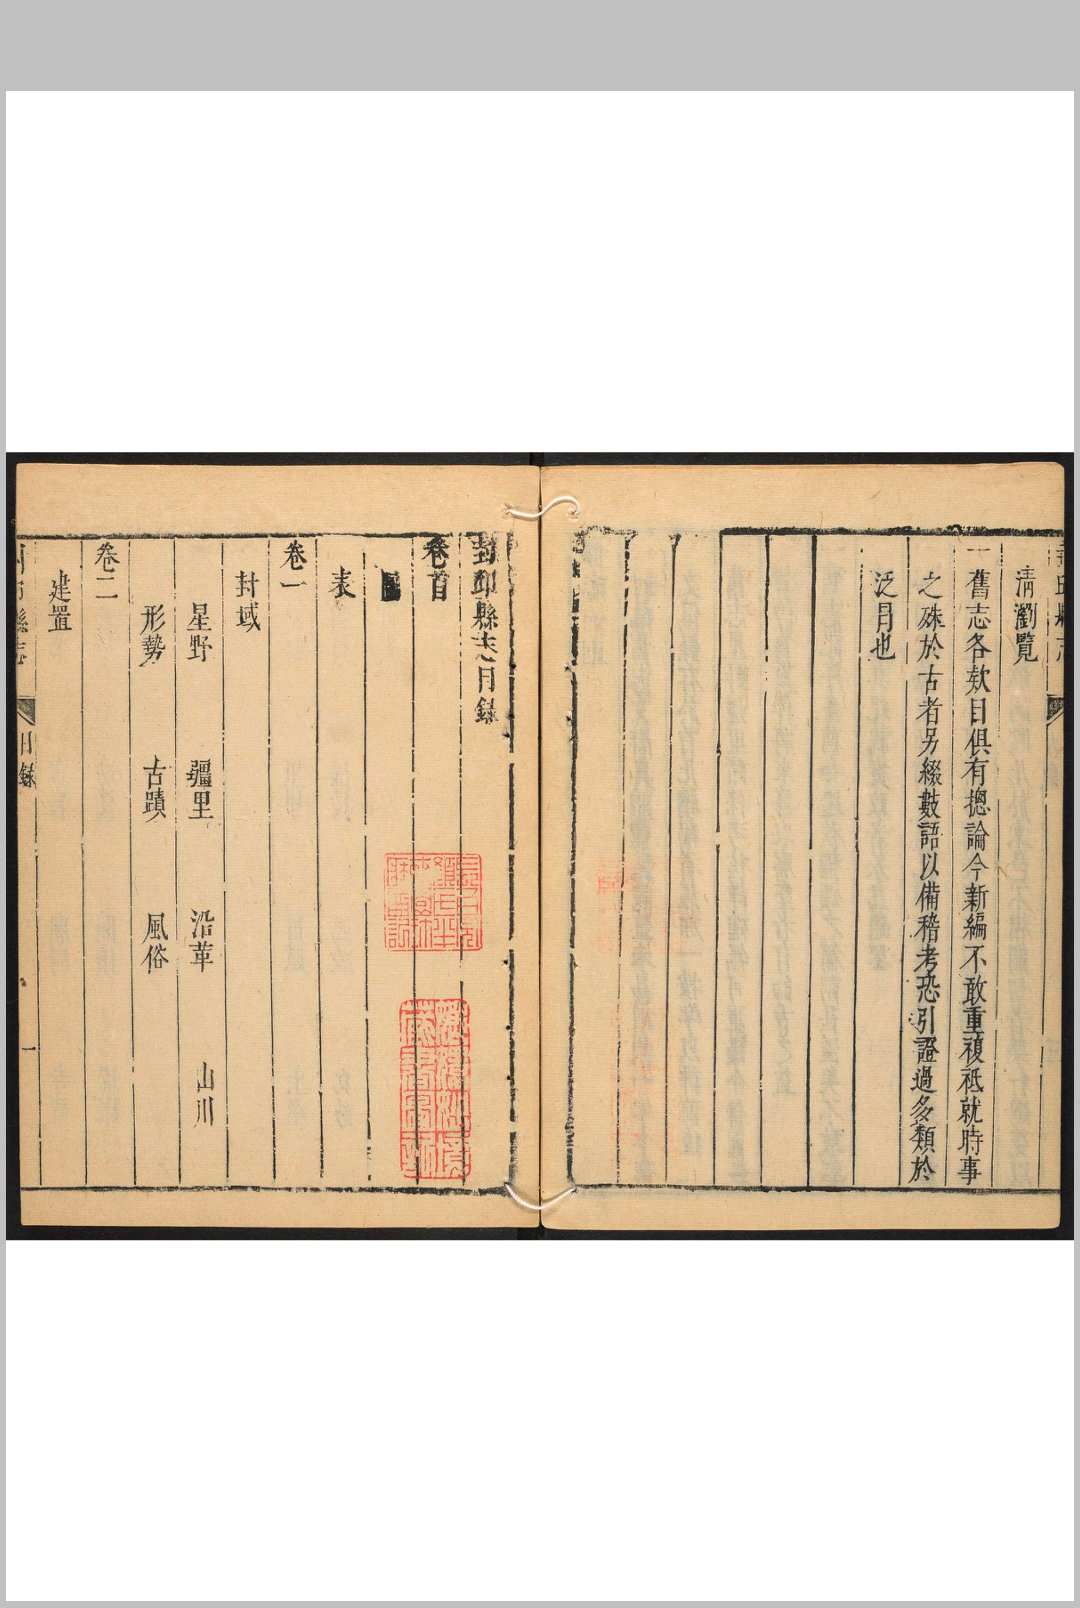 清瀏覽
一舊志各欵目俱有摠論今新編不敢重複祗就時事
之殊於古者另綴數語以備稽考恐引證過多類於
泛冐也
封邱縣志目錄
卷首
圖
表
卷一
封域
星野 疆里 沿革 山川
形勢 古蹟 風俗
卷二
建置
縣志 目錄 一